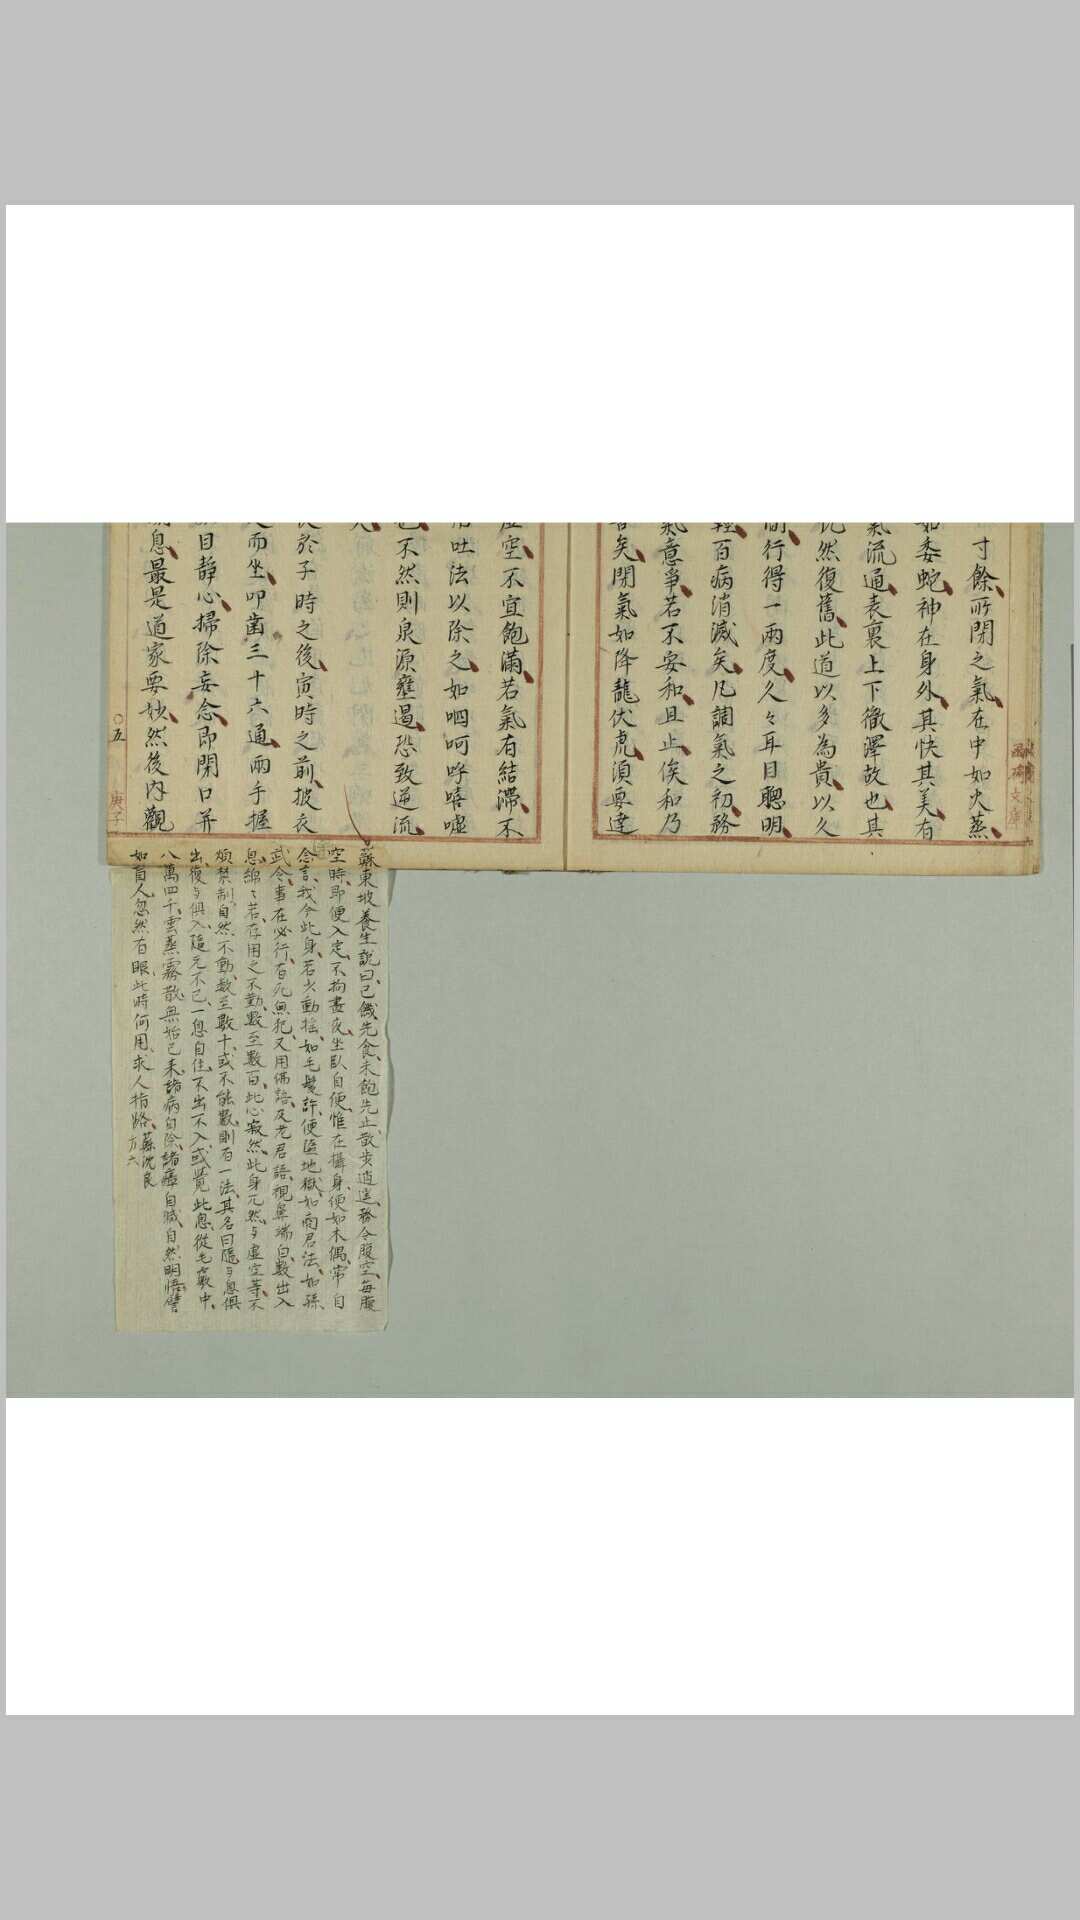 寸餘所閉之氣在中如火蒸
如委蛇神在身外其快其美有
氣流通表裏上下徹澤故也其
恍然復舊此道以多為貴以久
間行得一兩度久々耳目聰明
輕百病消滅矣凡調氣之初務
氣意爭若不安和且止俟和乃
者矣閉氣如降龍伏虎須要達
虛空不宜飽滿若氣有結滯不
用吐法以除之如呬呵呼嘻噓
也不然則泉源壅遏恐致逆流
從於子時之後寅時之前披衣
而坐叩齒三十六通兩手握
目靜心掃除妄念即閉口并
息最是道家要妙然後內觀
〇五
庚子
蘇東坡養生說曰已饑先食未飽先止散步逍遙務令腹空每腹
空時即便入定不拘晝夜坐臥自便惟在攝身便如木偶常自
念言我今此身若少動搖如毛髮許便墮地獄如商君法如孫
武令事在必行有死無犯又用佛語及老君語視鼻端白數出入
息綿〻若存用之不勤數至數百此心寂然此身兀然与虛空等不
煩禁制自然不動數至數十或不能數則有一法其名曰隨与息俱
出復与俱入隨无不已一息自住不出不入或覺此息從毛竅中
八萬四千雲蒸霧散無始已来諸病自除諸瘴自滅自然明悟譬
如盲人忽然有眼此時何用求人指路
蘇沈良
方六